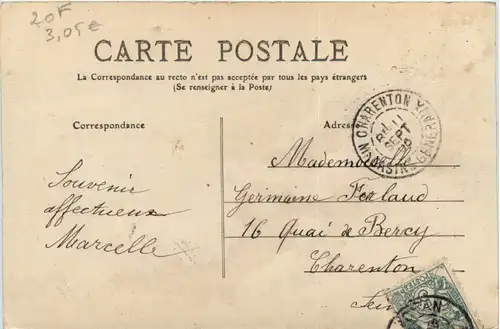 20F
3,05€
CARTE POSTALE
La Correspondance au recto n'est pas acceptée par tous les pays étrangers
(Se renseigner à la Poste)
Correspondance
Souvenir
affectueux
Marcelle
CHARENTON
MAGASINS GÉNÉRAUX
Mademoiselle
Germaine
16 Quai de Bercy
Charenton